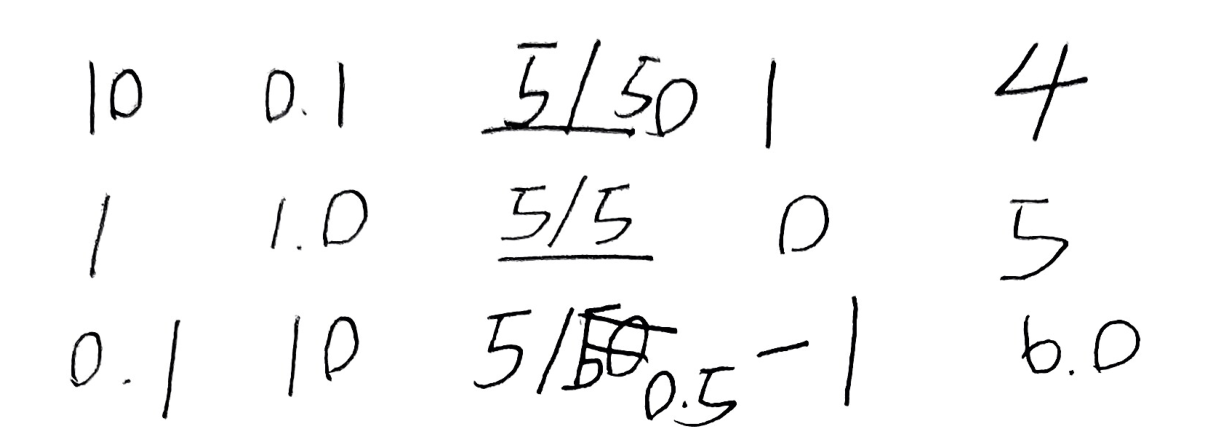 10 0.1 5/50 1 4
1 1.0 5/5 0 5
0.1 10 5/0.5 -1 6.0